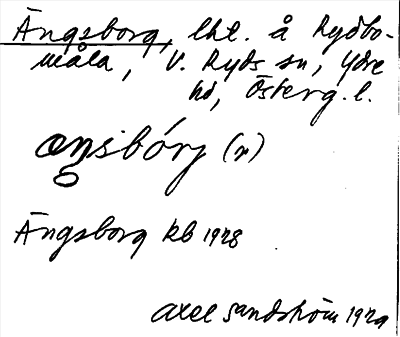 Ängsborg, lht. å Rydbo-
måla, V. Ryds sn, Ydre
hd, Österg. l.
æŋsbórj (n)
Ängsborg kb 1928
Axel Sandström 1929